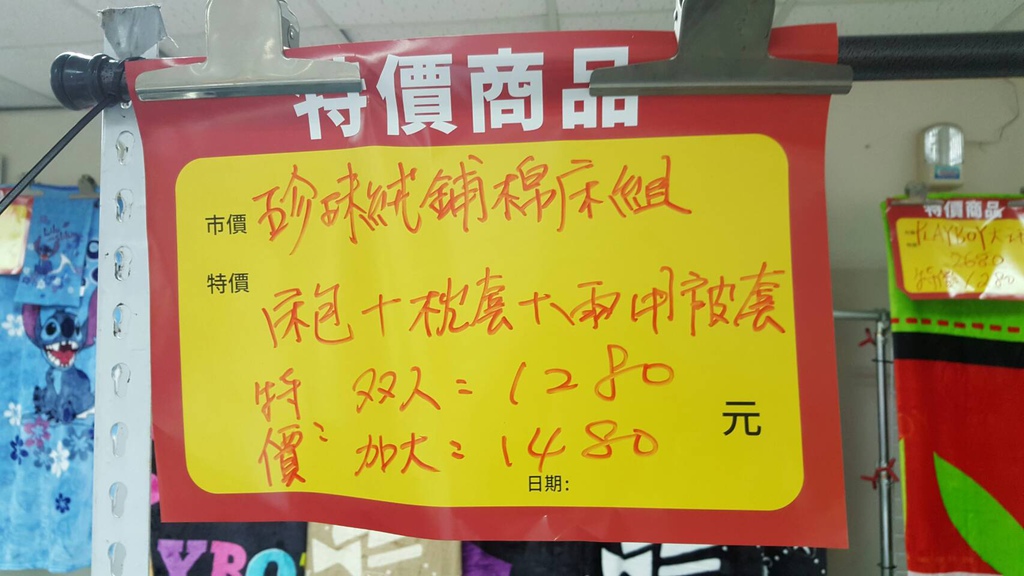 特價商品
市價 珍珠絨鋪棉床組
特價
床包+枕套+兩用被套
特價: 双人=1280
加大=1480
元
日期:
特價商品
PLAYBOY
2680
特價1280
YBO